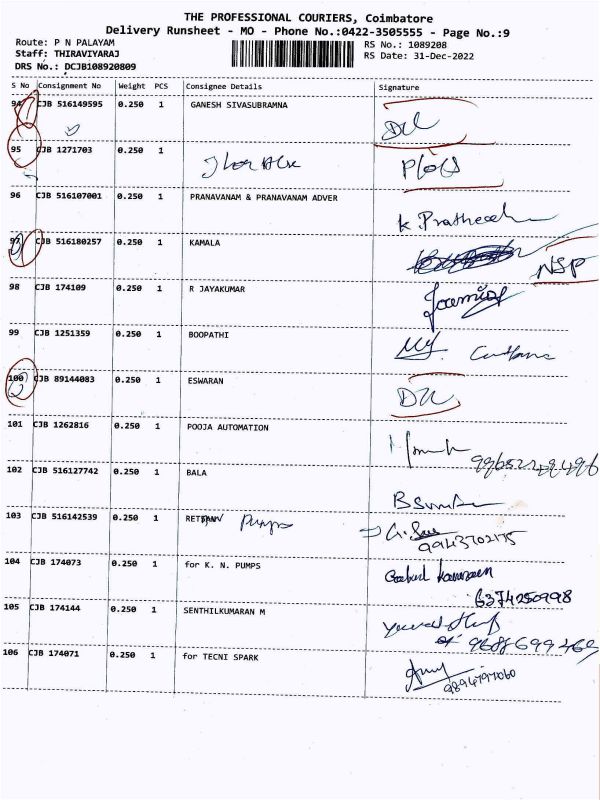 THE PROFESSIONAL COURIERS, Coimbatore
Delivery Runsheet - MO - Phone No.:0422-3505555 - Page No.:9
Route: P N PALAYAM
RS No.: 1089208
Staff: THIRAVIYARAJ
RS Date: 31-Dec-2022
DRS No.: DCJB108920809
S No Consignment No Weight PCS Consignee Details Signature
94 CJB 516149595 0.250 1 GANESH SIVASUBRAMNA
95 CJB 1271703 0.250 1
96 CJB 516107001 0.250 1 PRANAVANAM & PRANAVANAM ADVER
97 CJB 516180257 0.250 1 KAMALA NSP
98 CJB 174109 0.250 1 R JAYAKUMAR
99 CJB 1251359 0.250 1 BOOPATHI
100 CJB 89144083 0.250 1 ESWARAN
101 CJB 1262816 0.250 1 POOJA AUTOMATION
102 CJB 516127742 0.250 1 BALA
103 CJB 516142539 0.250 1 Pumps
9943702175
104 CJB 174073 0.250 1 for K. N. PUMPS
6374250998
105 CJB 174144 0.250 1 SENTHILKUMARAN M
106 CJB 174071 0.250 1 for TECNI SPARK